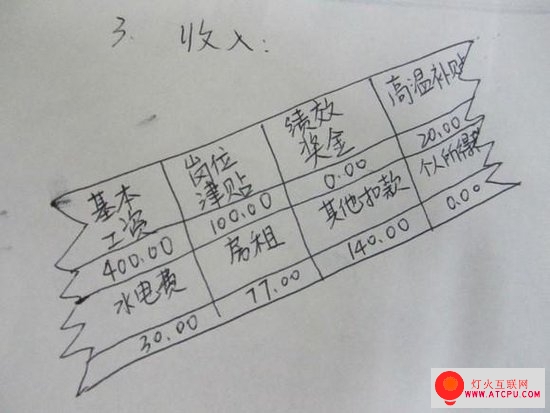 3. 收入:
基本工资 岗位津贴 绩效奖金 高温补贴
400.00 100.00 0.00 20.00
水电费 房租 其他扣款 个人所得税
30.00 77.00 140.00 0.00
灯火互联网
WWW.ATCPU.COM